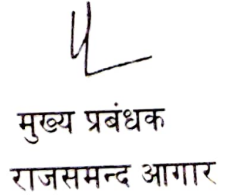 मुख्य प्रबंधक
राजसमन्द आगार